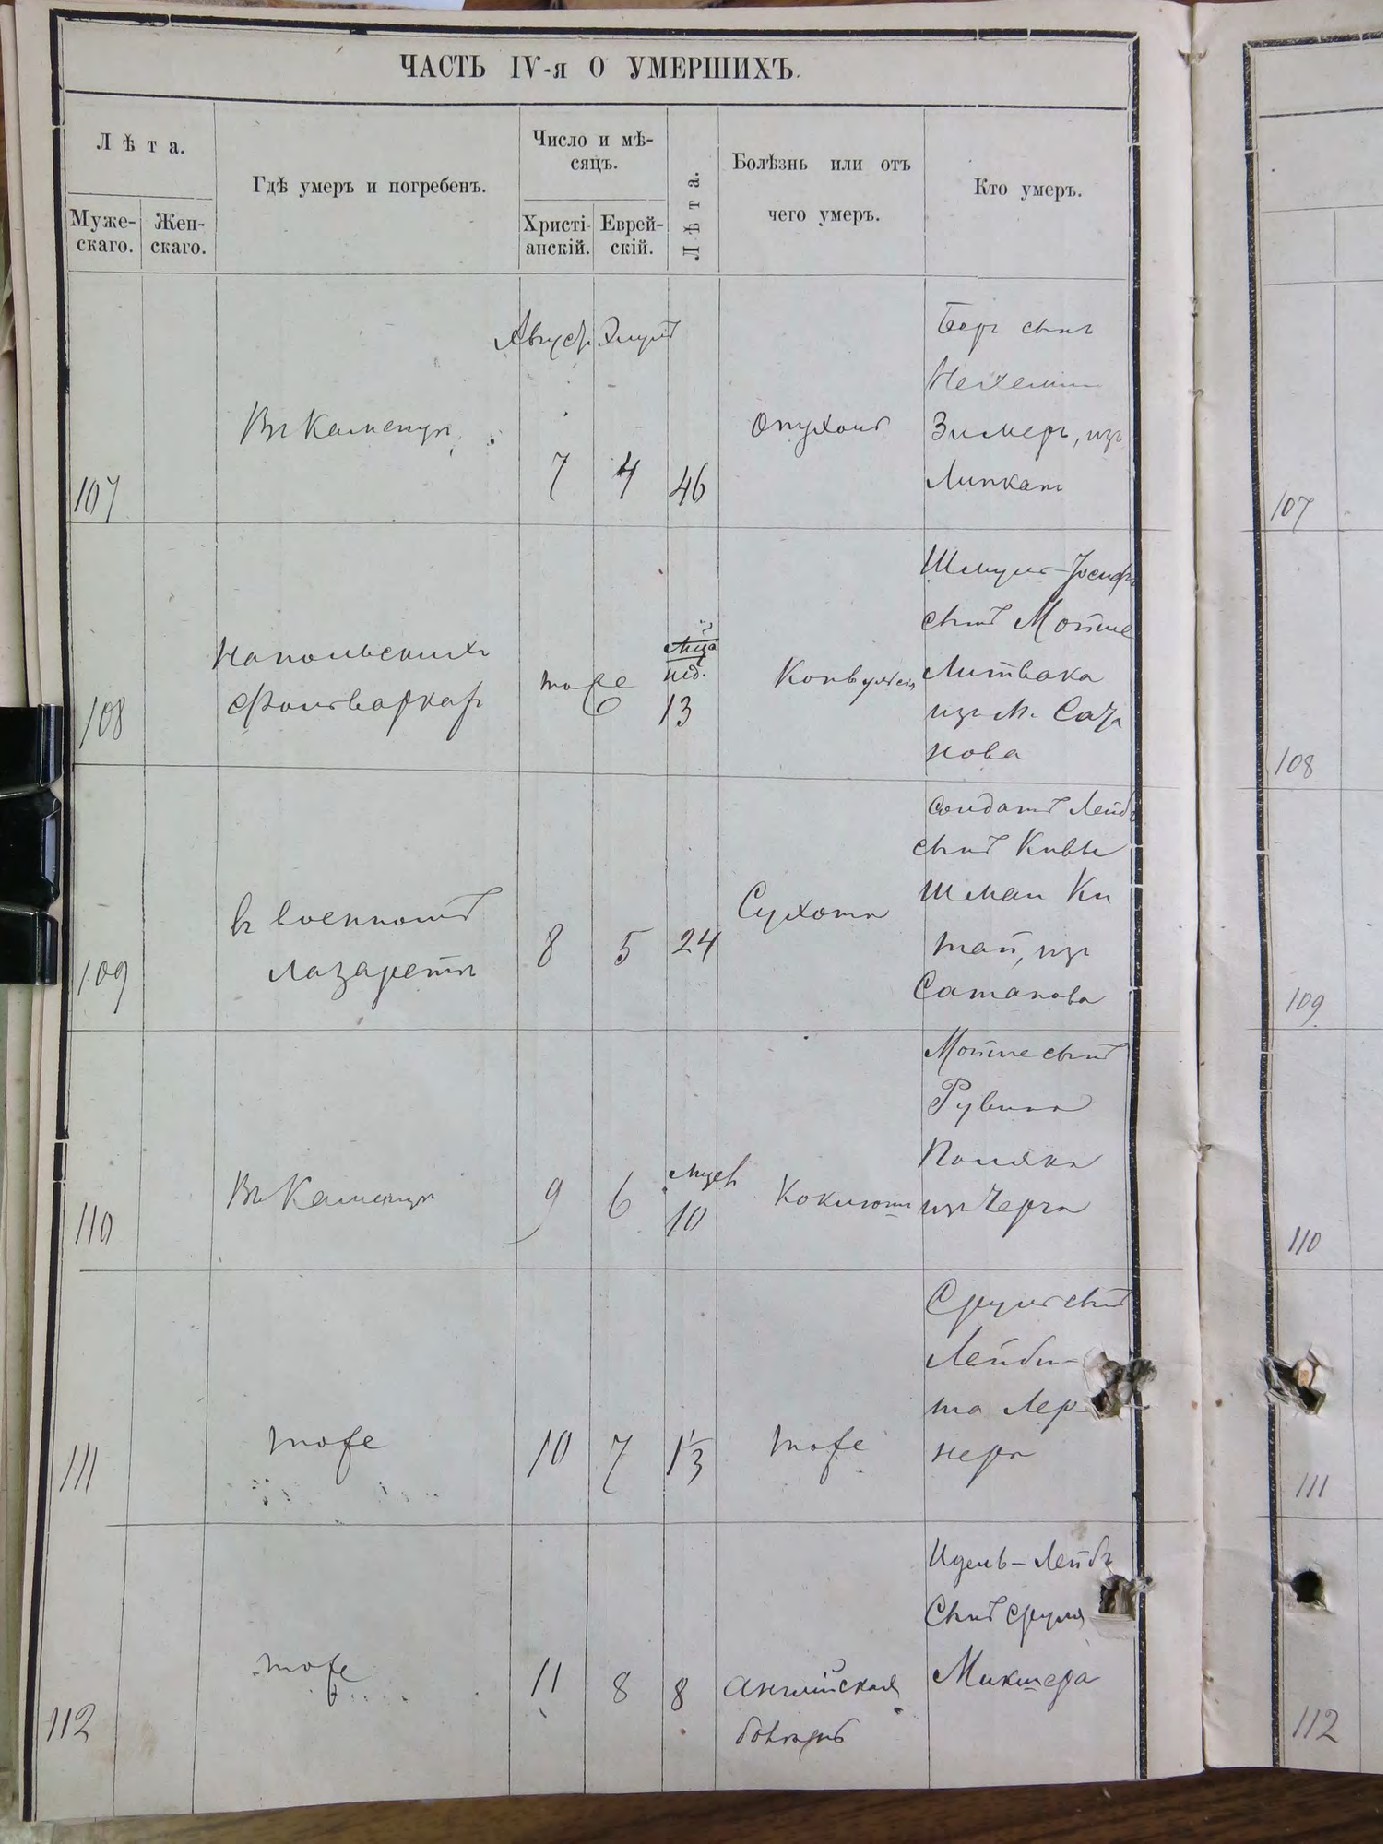 ЧАСТЬ IV-я О УМЕРШИХЪ.
Лѣта.
Муже-
скаго.
Жен-
скаго.
Гдѣ умеръ и погребенъ.
Число и мѣ-
сяцъ.
Христі-
анскій.
Еврей-
скій.
Лѣта.
Болѣзнь или отъ
чего умеръ.
Кто умеръ.
107
Въ Каменцѣ
Август Элулъ
7
4
46
Опухоль
Беръ сынъ
Нехеми
Зимеръ, изъ
Липканъ
107
108
На польскихъ
фольваркахъ
тоже
6
мца
нед.
13
Конвульсія
Шмуль-Іосифъ
сынъ Мотте
Литвака
изъ м. Сата
нова
108
109
въ военномъ
лазаретѣ
8
5
24
Сухота
Солдатъ Лейба
сынъ Кивы
Шман Ки
тай, изъ
Сатанова
109
110
Въ Каменцѣ
9
6
мцев
10
Коклюшъ
Мотте сынъ
Рувина
Поляка
изъ Черча
110
111
тоже
10
7
1⅓
тоже
Сруль сынъ
Лейби-
ша Лер
нера
111
112
тоже
11
8
8
Английская
болѣзнь
Идель-Лейбъ
Сынъ Сруля
Микшера
112